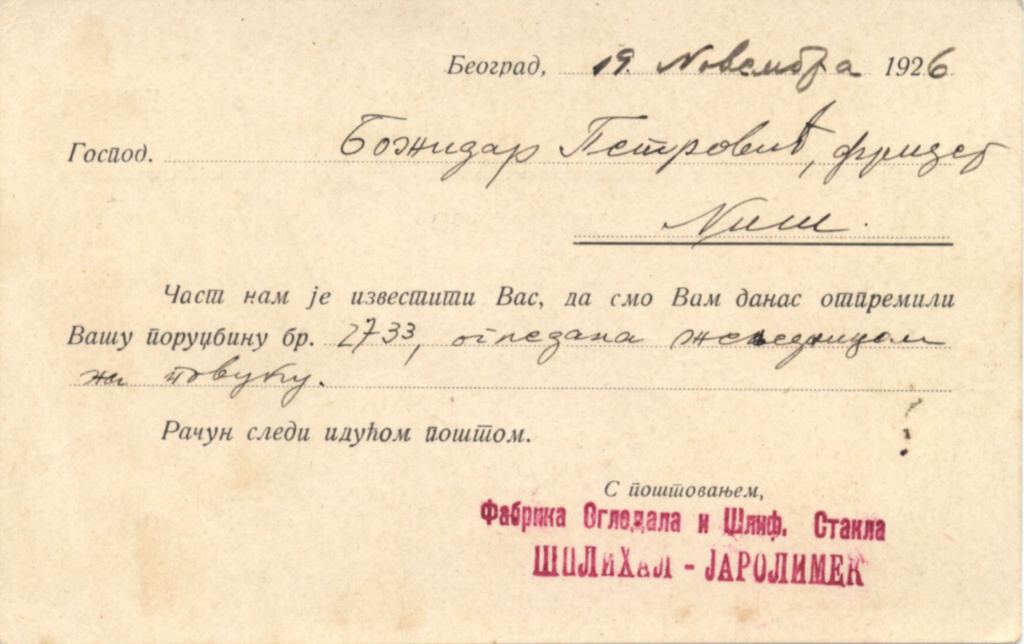 Београд, 19. Новембра 1926
Господ. Божидар Петровић, фризер
Ниш.
Част нам је известити Вас, да смо Вам данас отпремили
Вашу поруџбину бр. 2733, огледала жељезницом
на повуку.
Рачун следи идућом поштом.
С поштовањем,
Фабрика Огледала и Шлиф. Стакла
ШПЛИХАЛ - ЈАРОЛИМЕК